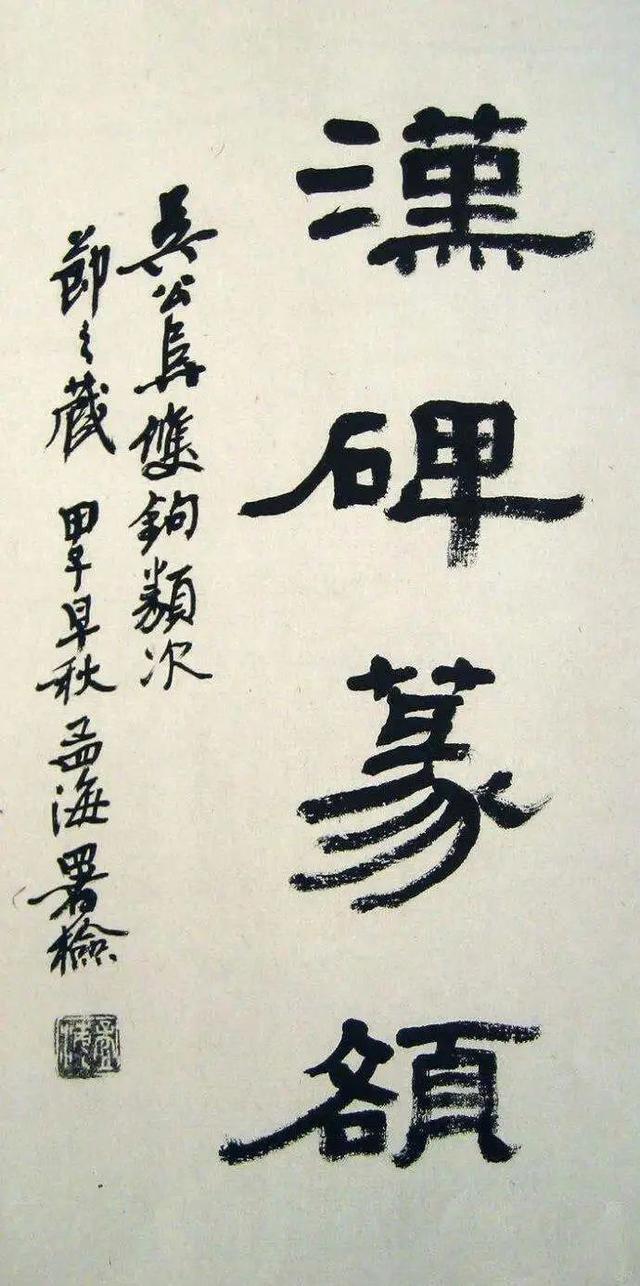 漢碑篆額
吳公阜雙鉤類次
節之藏 甲子早秋 孟海署檢